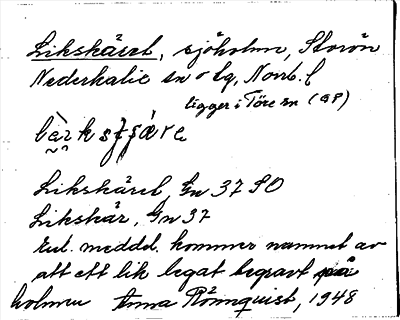 Likskäret, sjöholme, Storön
Nederkalix sn o tg, Norrb. l
ligger i Töre sn (GP)
Likskäret, Gn 37 SO
Likskär, Gn 37
Enl. meddel. kommer namnet av
att ett lik legat begravt på
holmen Anna Rönnquist, 1948